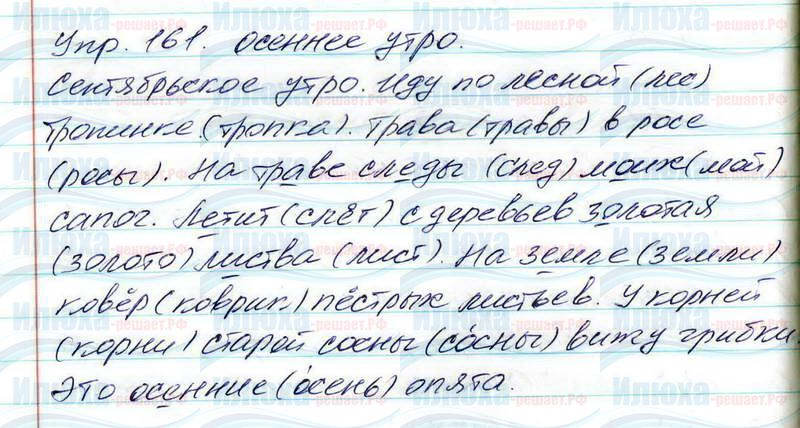 Упр. 161. Осеннее утро.
Сентябрьское утро. Иду по лесной (лес)
тропинке (тропка). Трава (травы) в росе
(росы). На траве следы (след) моих (мой)
сапог. Летит (слёт) с деревьев золотая
(золото) листва (лист). На земле (земли)
ковёр (коврик) пёстрых листьев. У корней
(корни) старой сосны (со́сны) вижу грибки.
Это осенние (о́сень) опята.